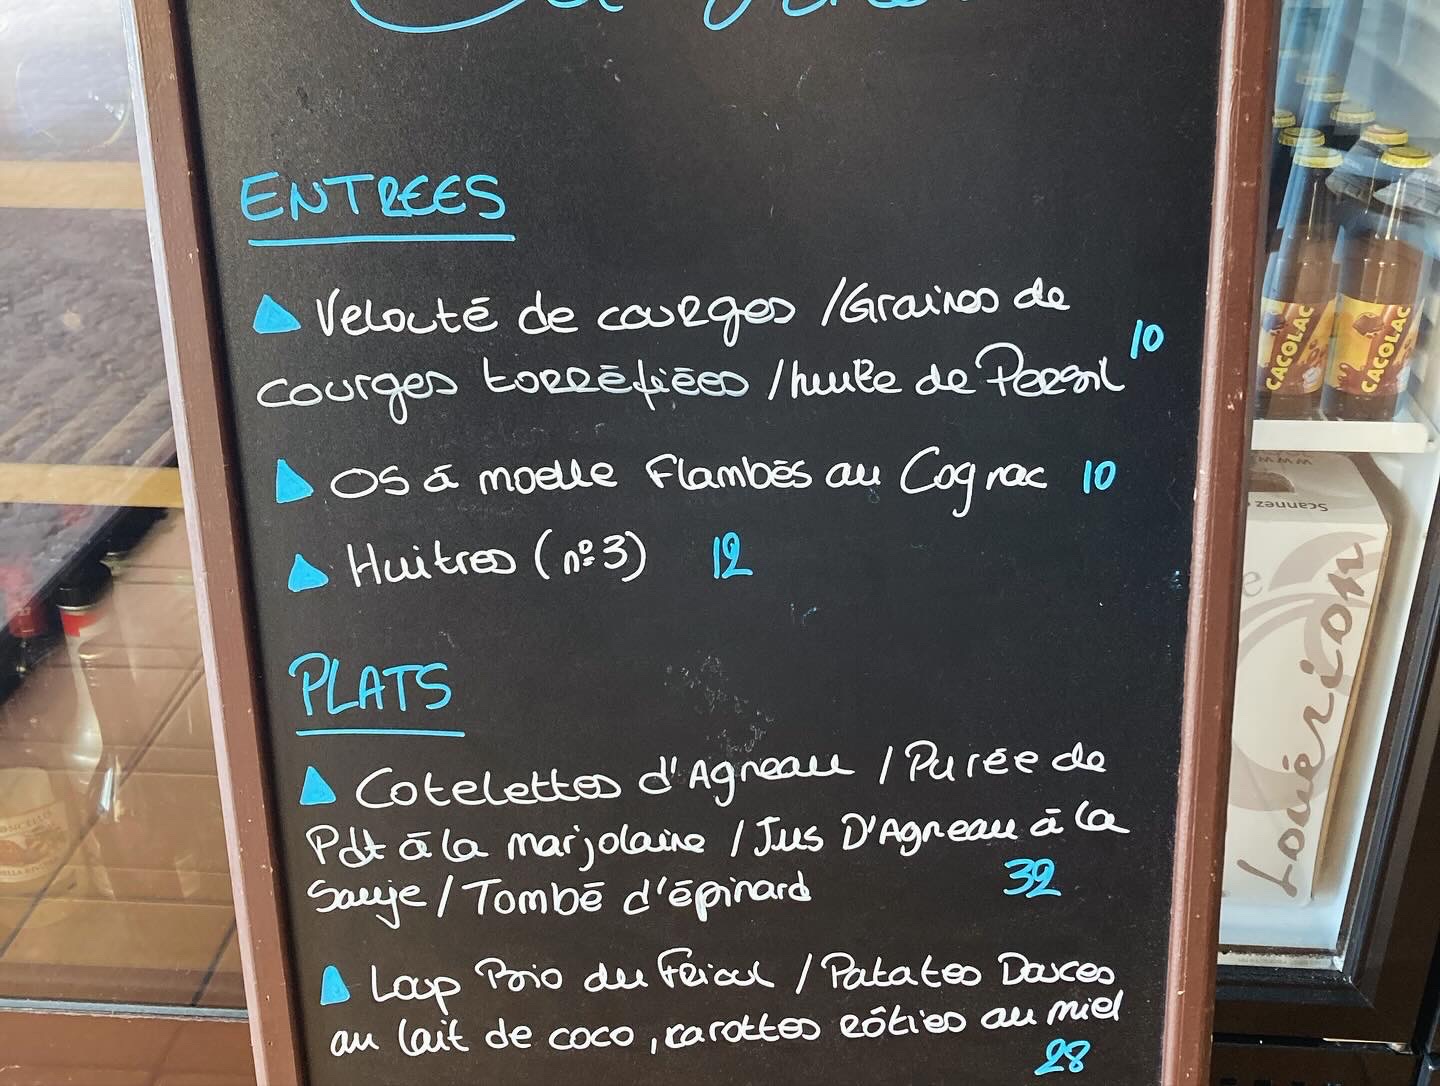 ENTREES
Velouté de courges /Graines de
courges torréfiées /huile de Persil 10
OS à moelle Flambés au Cognac 10
Huitres (n°3) 12
PLATS
Cotelettes d'Agneau / Purée de
Pdt à la marjolaine / Jus D'Agneau à la
Sauge / Tombé d'épinard 32
Loup Bio du Frioul / Patates Douces
au lait de coco, carottes rôties au miel
28
CACOLAC
CACOLAC
Scannez
Louérion